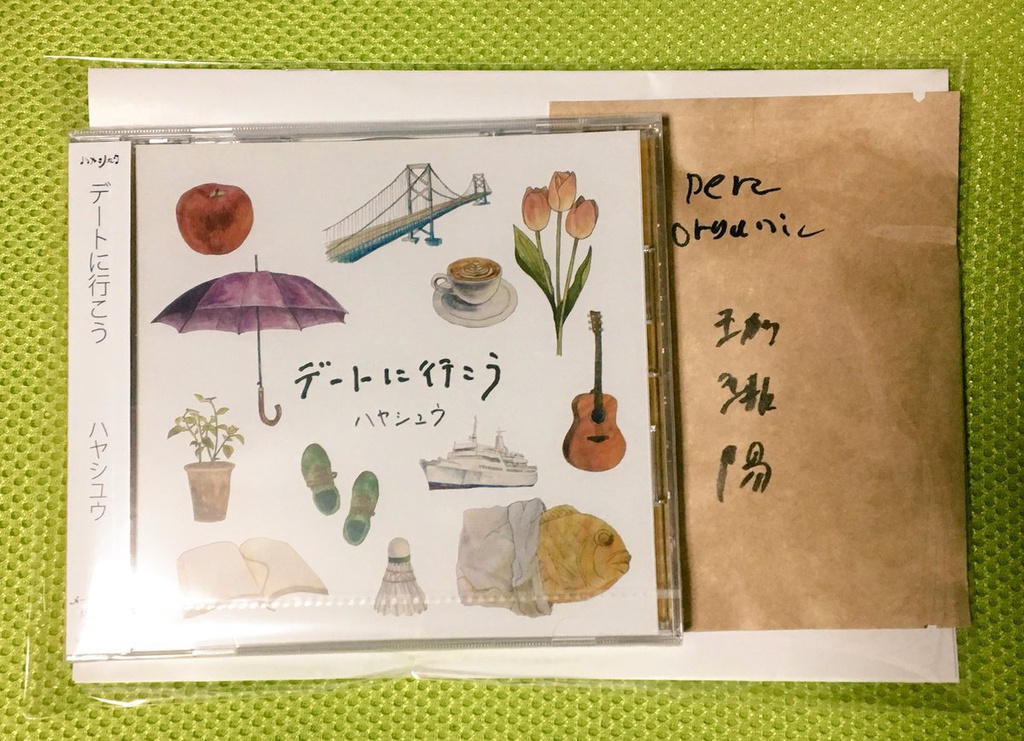 ハヤシユウ
デートに行こう
ハヤシユウ
デートに行こう
ハヤシユウ
organic
陽